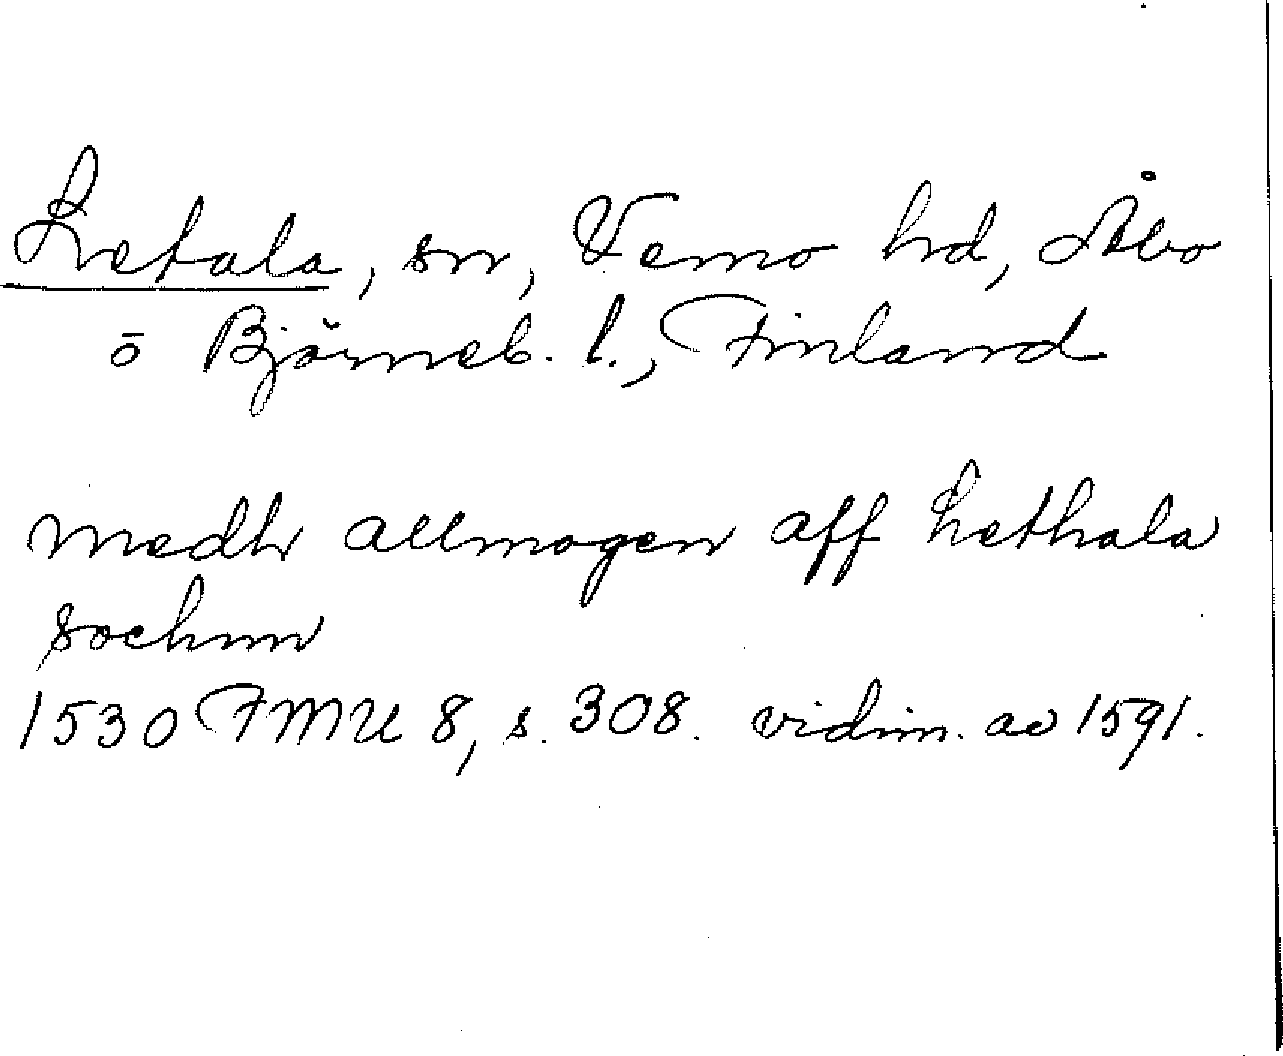 Letala, sn, Vemo hd, Åbo
o Björneb. l., Finland
medh allmogen aff Lethala
sochnn
1530 FMU 8, s. 308. vidim. av 1591.